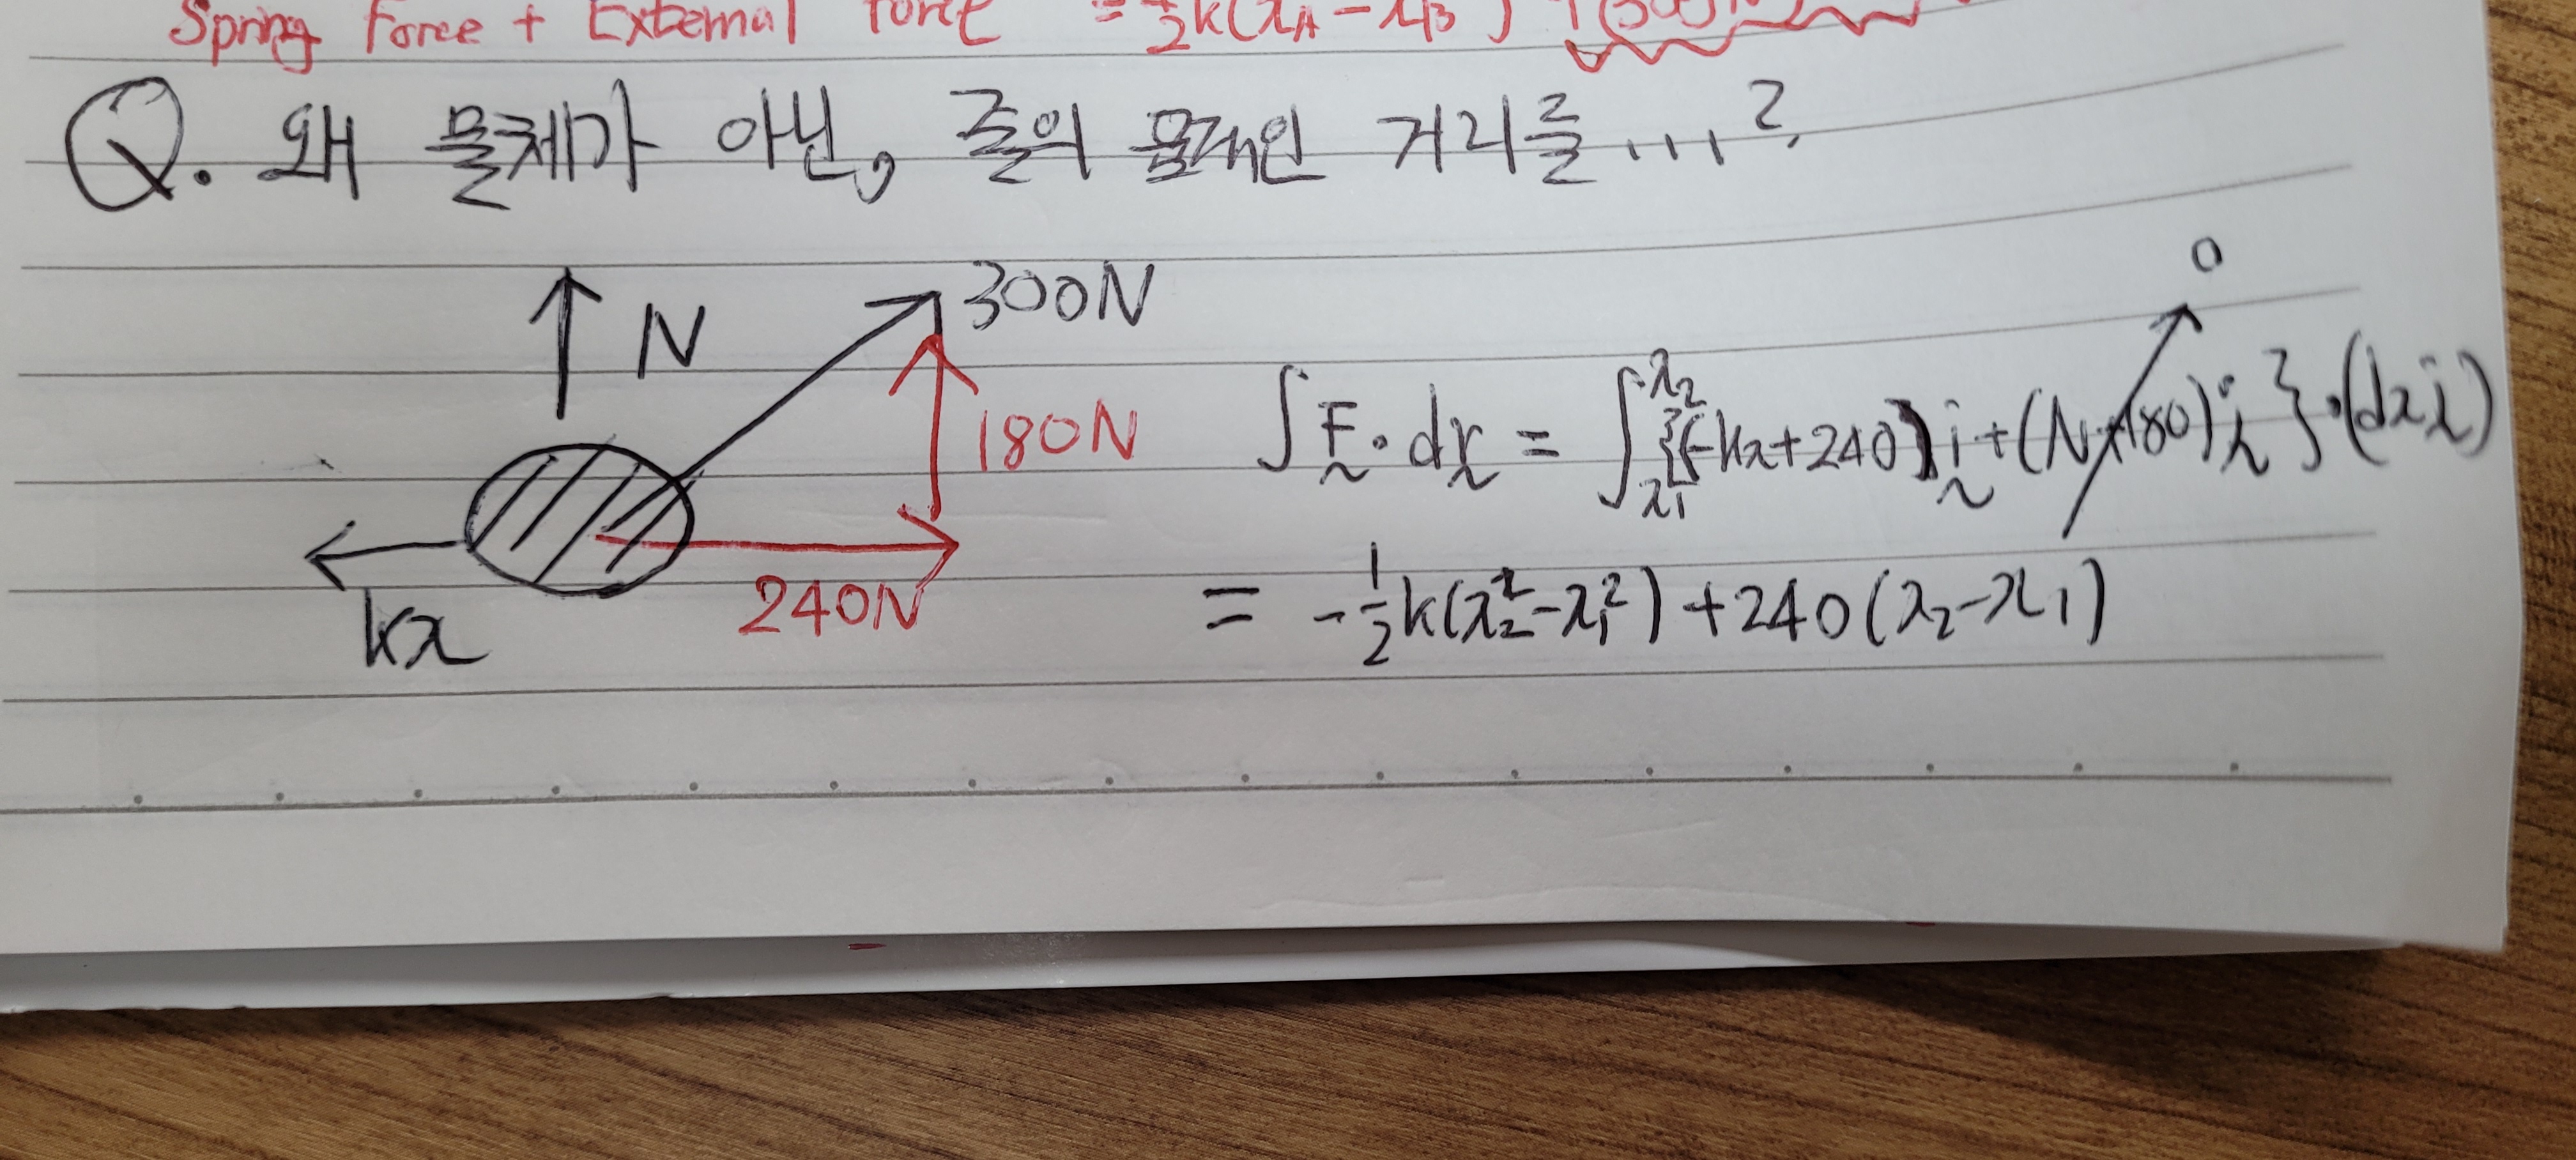 Spring Force + External Force = ½k(x_A - x_B) + (300
Q. 왜 물체가 아닌, 줄의 움직인 거리를 ...?
N
300N
180N
240N
kx
0
∫F·dr = ∫_{x₁}^{x₂}{(-kx+240)i+(N+180)j}·(dxi)
= -½k(x₂²-x₁²)+240(x₂-x₁)